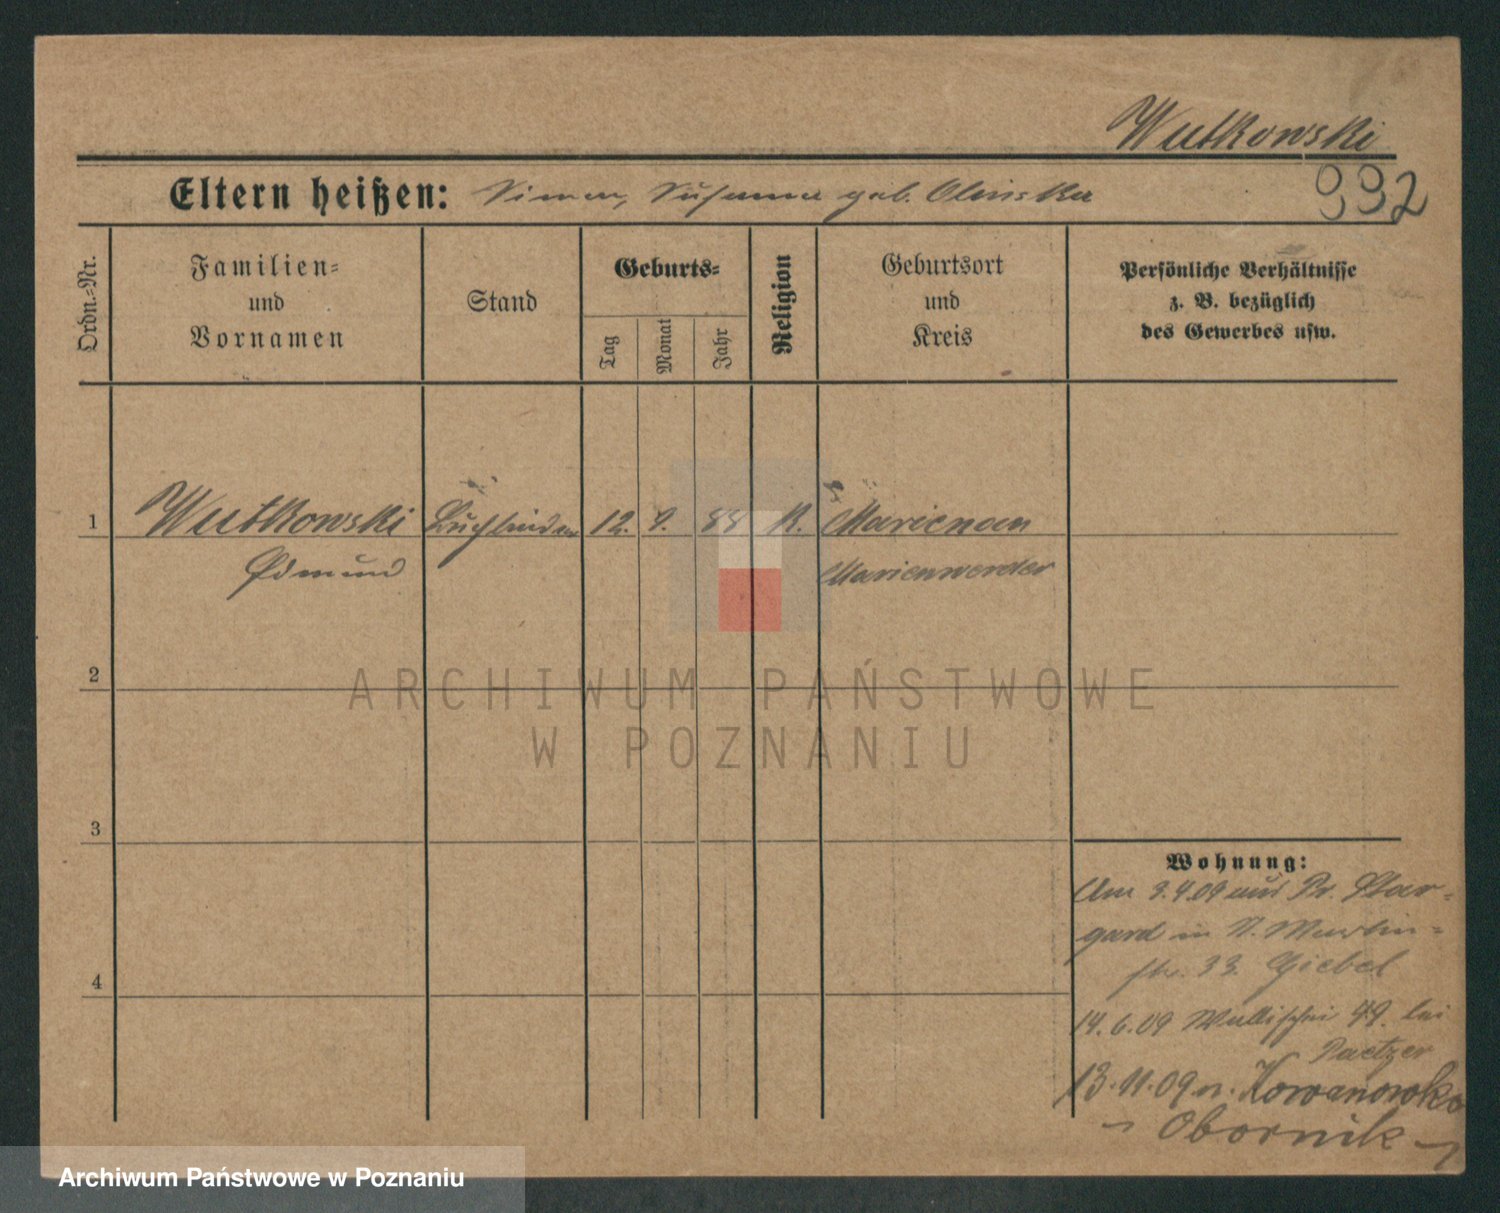 Wutkowski
Eltern heißen: Simon, Susanna geb. Olinska
992
Ordn.=Nr.
Familien=
und
Vornamen
Stand
Geburts=
Tag
Monat
Jahr
Religion
Geburtsort
und
Kreis
Persönliche Verhältnisse
z. B. bezüglich
des Gewerbes usw.
1 Wutkowski Buchbinder 12. 9. 88 K. Marienau
Edmund Marienwerder
2
ARCHIWUM PAŃSTWOWE
W POZNANIU
3
Wohnung:
Am 3.4.09 aus Pr. Star=
gard in St. Martin=
str. 33 Giebel
4
14.6.09 Wallischei 49. bei
Paetzer
13.11.09 n. Kowanowko
Obornik
Archiwum Państwowe w Poznaniu